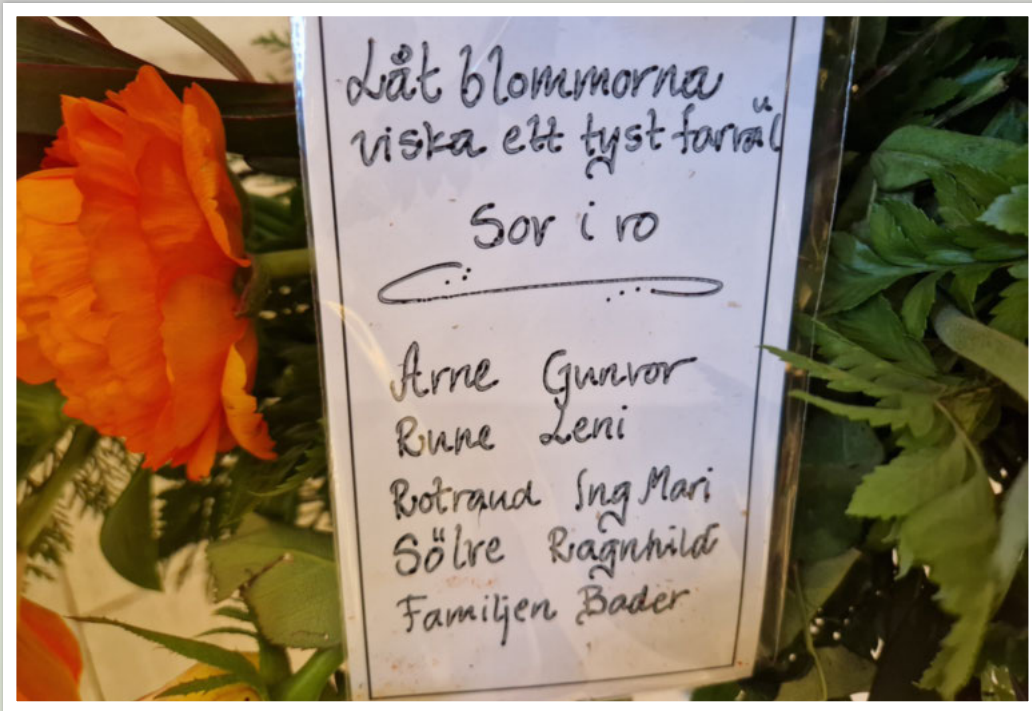 Låt blommorna
viska ett tyst farväl
Sov i ro
Arne Gunvor
Rune Leni
Rotraud Ing Mari
Sölve Ragnhild
Familjen Bader